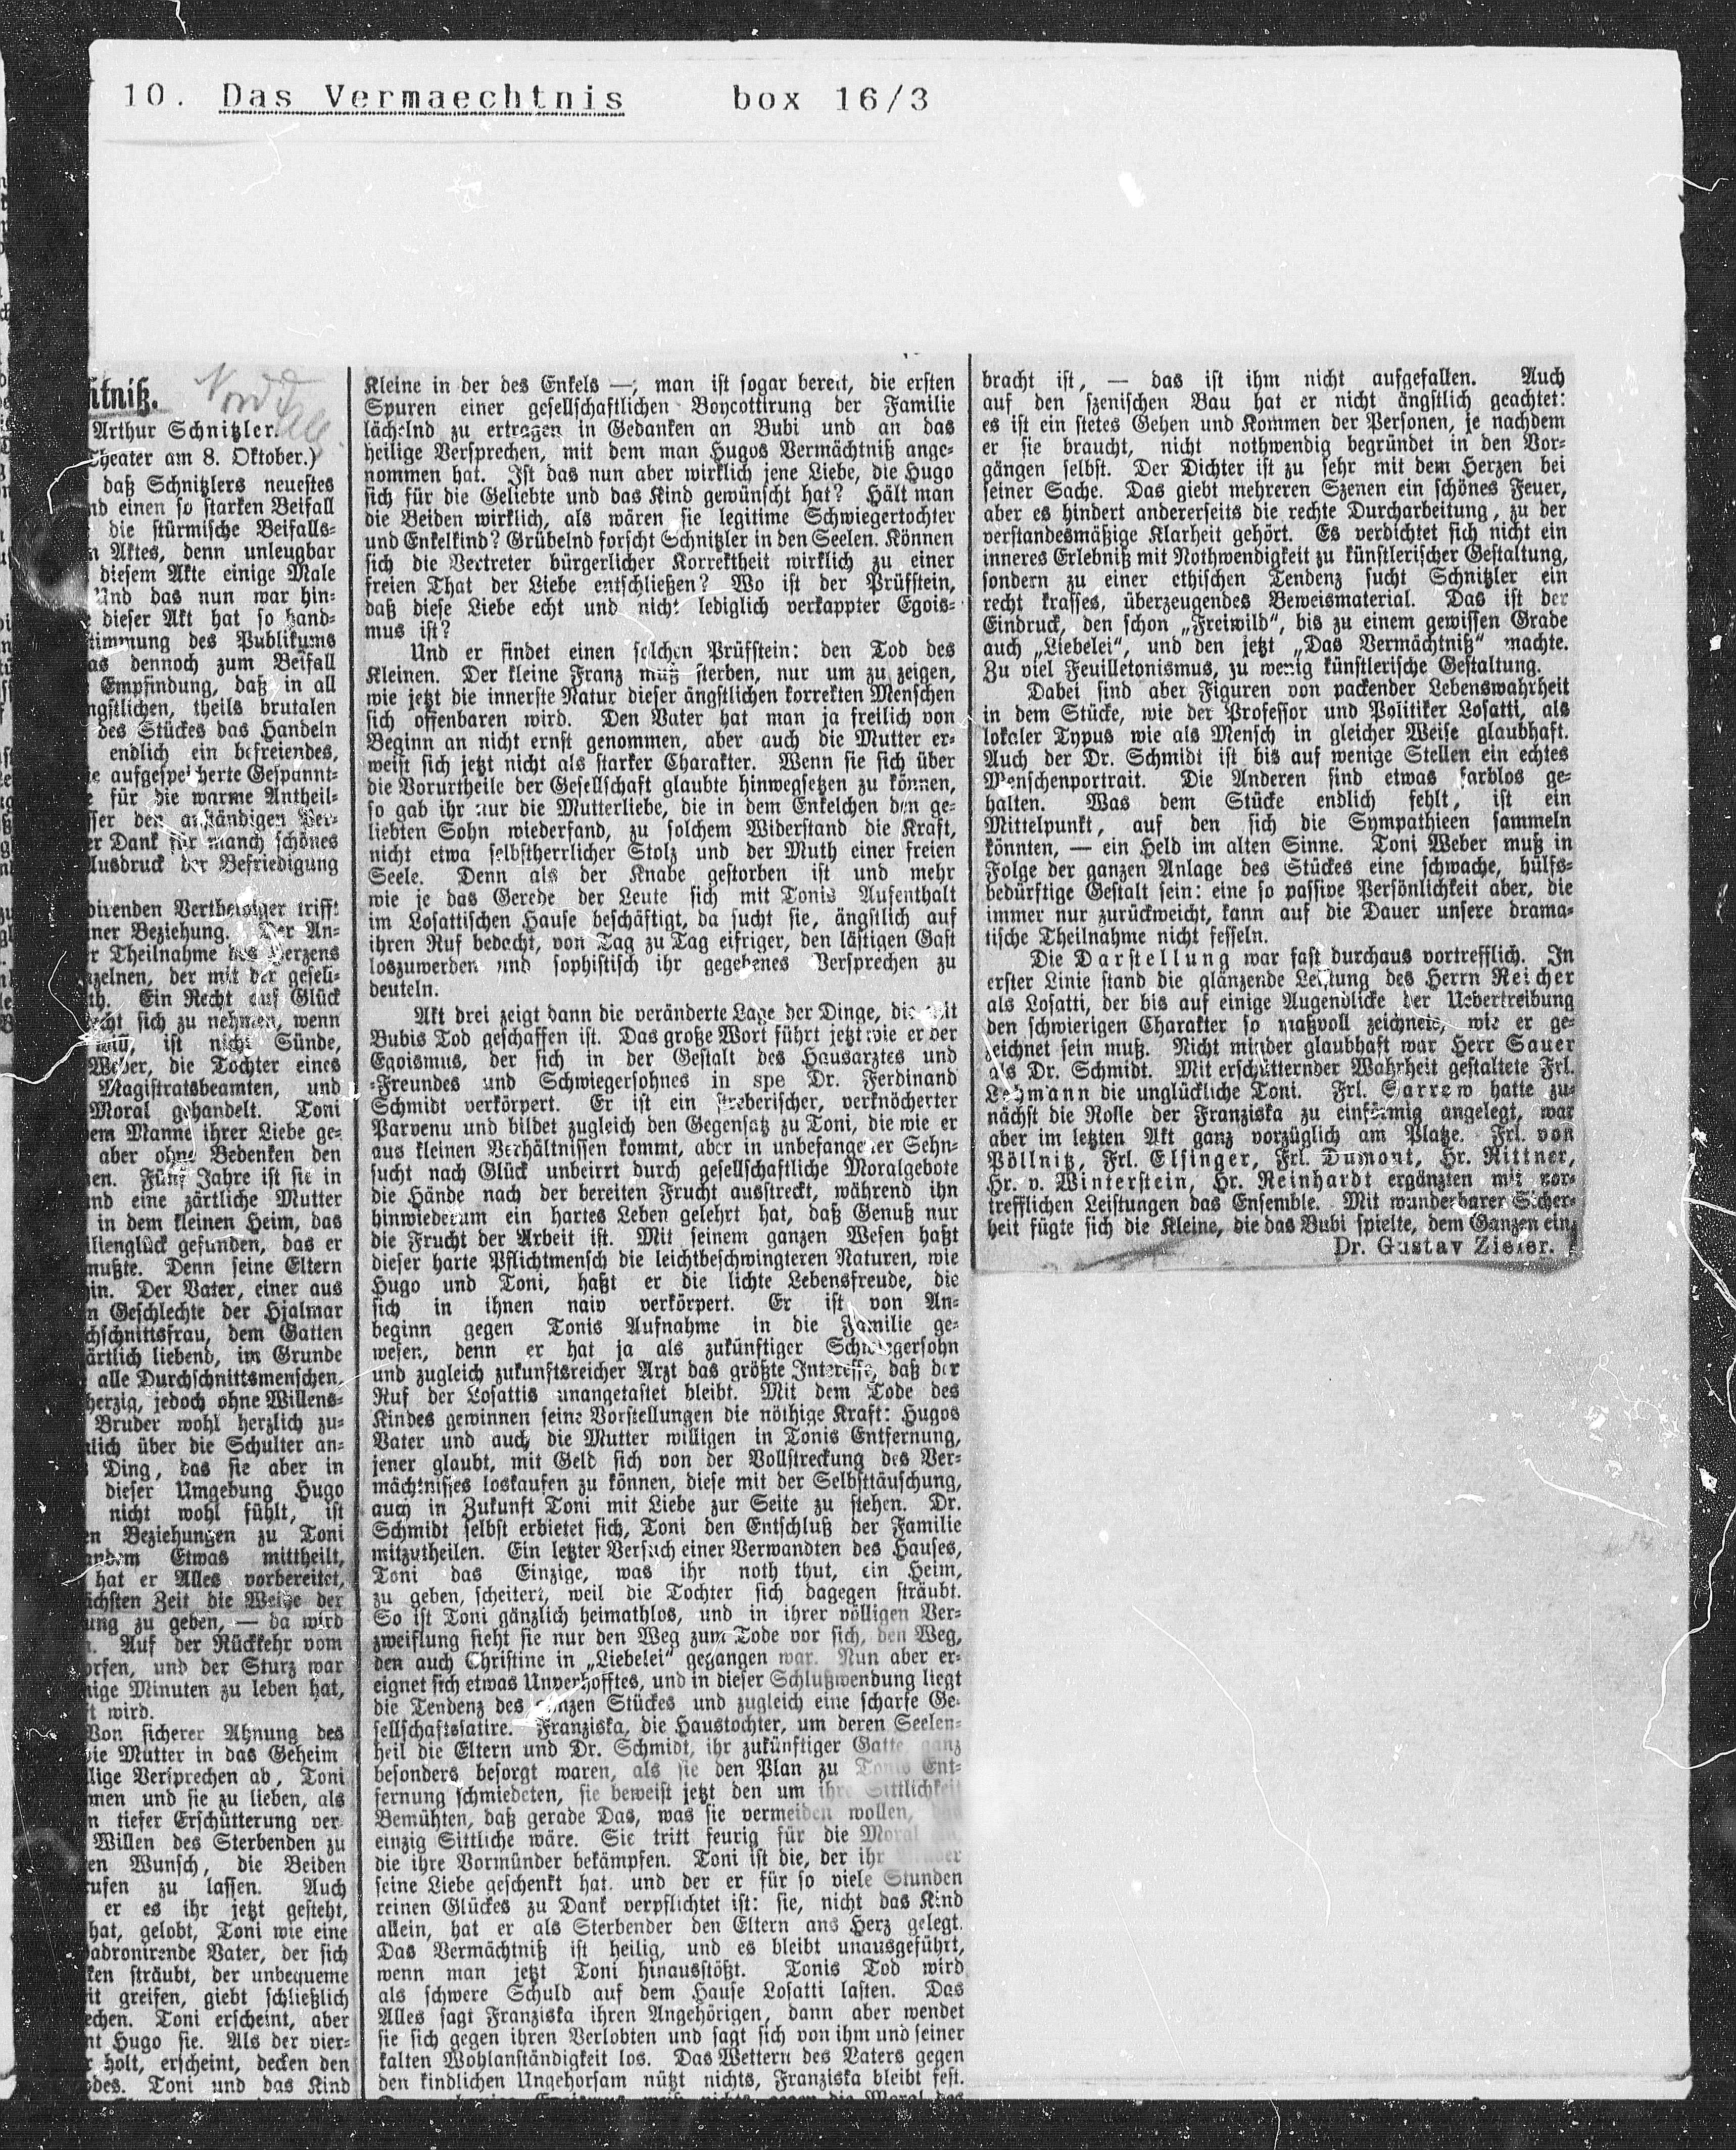 10. Das Vermaechtnis box 16/3
htniß.
Nordd Allg.
Arthur Schnitzler.
Theater am 8. Oktober.)
daß Schnitzlers neuestes
nd einen so starken Beifall
die stürmische Beifalls-
n Aktes, denn unleugbar
diesem Akte einige Male
Und das nun war hin-
dieser Akt hat so hand-
timmung des Publikums
as dennoch zum Beifall
Empfindung, daß in all
ngstlichen, theils brutalen
des Stückes das Handeln
endlich ein befreiendes,
e aufgespeicherte Gespannt-
e für die warme Antheil-
ser den anständigen Ver-
er Dank für manch schönes
Ausdruck der Befriedigung
direnden Vertheidiger trifft
ner Beziehung. Der An-
r Theilnahme des Herzens
zelnen, der mit der gesell-
th. Ein Recht auf Glück
echt sich zu nehmen, wenn
will, ist nicht Sünde,
Weber, die Tochter eines
Magistratsbeamten, und
Moral gehandelt. Toni
dem Manne ihrer Liebe ge-
aber ohne Bedenken den
en. Fünf Jahre ist sie in
nd eine zärtliche Mutter
in dem kleinen Heim, das
ilienglück gefunden, das er
mußte. Denn seine Eltern
in. Der Vater, einer aus
n Geschlechte der Hjalmar
chschnittsfrau, dem Gatten
ärtlich liebend, im Grunde
alle Durchschnittsmenschen,
herzig, jedoch ohne Willens-
Bruder wohl herzlich zu-
lich über die Schulter an-
Ding, das sie aber in
dieser Umgebung Hugo
nicht wohl fühlt, ist
en Beziehungen zu Toni
andem Etwas mittheilt,
hat er Alles vorbereitet,
ächsten Zeit die Weihe der
ung zu geben, — da wird
. Auf der Rückkehr vom
orfen, und der Sturz war
nige Minuten zu leben hat,
t wird.
Von sicherer Ahnung des
die Mutter in das Geheim
lige Versprechen ab, Toni
men und sie zu lieben, als
n tiefer Erschütterung ver-
Willen des Sterbenden zu
en Wunsch, die Beiden
rufen zu lassen. Auch
er es ihr jetzt gesteht,
hat, gelobt, Toni wie eine
adronirende Vater, der sich
ken sträubt, der unbequeme
it greifen, giebt schließlich
echen. Toni erscheint, aber
nt Hugo sie. Als der vier-
r holt, erscheint, decken den
des. Toni und das Kind
Kleine in der des Enkels —; man ist sogar bereit, die ersten
Spuren einer gesellschaftlichen Boycottirung der Familie
lächelnd zu ertragen in Gedanken an Bubi und an das
heilige Versprechen, mit dem man Hugos Vermächtniß ange-
nommen hat. Ist das nun aber wirklich jene Liebe, die Hugo
sich für die Geliebte und das Kind gewünscht hat? Hält man
die Beiden wirklich, als wären sie legitime Schwiegertochter
und Enkelkind? Grübelnd forscht Schnitzler in den Seelen. Können
sich die Vertreter bürgerlicher Korrektheit wirklich zu einer
freien That der Liebe entschließen? Wo ist der Prüfstein,
daß diese Liebe echt und nicht lediglich verkappter Egois-
mus ist?
Und er findet einen solchen Prüfstein: den Tod des
Kleinen. Der kleine Franz muß sterben, nur um zu zeigen,
wie jetzt die innerste Natur dieser ängstlichen korrekten Menschen
sich offenbaren wird. Den Vater hat man ja freilich von
Beginn an nicht ernst genommen, aber auch die Mutter er-
weist sich jetzt nicht als starker Charakter. Wenn sie sich über
die Vorurtheile der Gesellschaft glaubte hinwegsetzen zu können,
so gab ihr nur die Mutterliebe, die in dem Enkelchen den ge-
liebten Sohn wiederfand, zu solchem Widerstand die Kraft,
nicht etwa selbstherrlicher Stolz und der Muth einer freien
Seele. Denn als der Knabe gestorben ist und mehr
wie je das Gerede der Leute sich mit Tonis Aufenthalt
im Losattischen Hause beschäftigt, da sucht sie, ängstlich auf
ihren Ruf bedacht, von Tag zu Tag eifriger, den lästigen Gast
loszuwerden und sophistisch ihr gegebenes Versprechen zu
deuteln.
Akt drei zeigt dann die veränderte Lage der Dinge, die mit
Bubis Tod geschaffen ist. Das große Wort führt jetzt wieder der
Egoismus, der sich in der Gestalt des Hausarztes und
-Freundes und Schwiegersohnes in spe Dr. Ferdinand
Schmidt verkörpert. Er ist ein streberischer, verknöcherter
Parvenu und bildet zugleich den Gegensatz zu Toni, die wie er
aus kleinen Verhältnissen kommt, aber in unbefangener Sehn-
sucht nach Glück unbeirrt durch gesellschaftliche Moralgebote
die Hände nach der bereiten Frucht ausstreckt, während ihn
hinwiederum ein hartes Leben gelehrt hat, daß Genuß nur
die Frucht der Arbeit ist. Mit seinem ganzen Wesen haßt
dieser harte Pflichtmensch die leichtbeschwingteren Naturen, wie
Hugo und Toni, haßt er die lichte Lebensfreude, die
sich in ihnen naiv verkörpert. Er ist von An-
beginn gegen Tonis Aufnahme in die Familie ge-
wesen, denn er hat ja als zukünftiger Schwiegersohn
und zugleich zukunftsreicher Arzt das größte Interesse, daß der
Ruf der Losattis unangetastet bleibt. Mit dem Tode des
Kindes gewinnen seine Vorstellungen die nöthige Kraft: Hugos
Vater und auch die Mutter willigen in Tonis Entfernung,
jener glaubt, mit Geld sich von der Vollstreckung des Ver-
mächtnisses loskaufen zu können, diese mit der Selbsttäuschung,
auch in Zukunft Toni mit Liebe zur Seite zu stehen. Dr.
Schmidt selbst erbietet sich, Toni den Entschluß der Familie
mitzutheilen. Ein letzter Versuch einer Verwandten des Hauses,
Toni das Einzige, was ihr noth thut, ein Heim,
zu geben, scheitert, weil die Tochter sich dagegen sträubt.
So ist Toni gänzlich heimathlos, und in ihrer völligen Ver-
zweiflung sieht sie nur den Weg zum Tode vor sich, den Weg,
den auch Christine in „Liebelei“ gegangen war. Nun aber er-
eignet sich etwas Unverhofftes, und in dieser Schlußwendung liegt
die Tendenz des ganzen Stückes und zugleich eine scharfe Ge-
sellschaftssatire. Franziska, die Haustochter, um deren Seelen-
heil die Eltern und Dr. Schmidt, ihr zukünftiger Gatte, ganz
besonders besorgt waren, als sie den Plan zu Tonis Ent-
fernung schmiedeten, sie beweist jetzt den um ihre Sittlichkeit
Bemühten, daß gerade Das, was sie vermeiden wollen, das
einzig Sittliche wäre. Sie tritt feurig für die Moral
die ihre Vormünder bekämpfen. Toni ist die, der ihr Bruder
seine Liebe geschenkt hat, und der er für so viele Stunden
reinen Glückes zu Dank verpflichtet ist: sie, nicht das Kind
allein, hat er als Sterbender den Eltern ans Herz gelegt.
Das Vermächtniß ist heilig, und es bleibt unausgeführt,
wenn man jetzt Toni hinausstößt. Tonis Tod wird
als schwere Schuld auf dem Hause Losatti lasten. Das
Alles sagt Franziska ihren Angehörigen, dann aber wendet
sie sich gegen ihren Verlobten und sagt sich von ihm und seiner
kalten Wohlanständigkeit los. Das Wettern des Vaters gegen
den kindlichen Ungehorsam nützt nichts, Franziska bleibt fest.
bracht ist, — das ist ihm nicht aufgefallen. Auch
auf den szenischen Bau hat er nicht ängstlich geachtet:
es ist ein stetes Gehen und Kommen der Personen, je nachdem
er sie braucht, nicht nothwendig begründet in den Vor-
gängen selbst. Der Dichter ist zu sehr mit dem Herzen bei
seiner Sache. Das giebt mehreren Szenen ein schönes Feuer,
aber es hindert andererseits die rechte Durcharbeitung, zu der
verstandesmäßige Klarheit gehört. Es verdichtet sich nicht ein
inneres Erlebniß mit Nothwendigkeit zu künstlerischer Gestaltung,
sondern zu einer ethischen Tendenz sucht Schnitzler ein
recht krasses, überzeugendes Beweismaterial. Das ist der
Eindruck, den schon „Freiwild“, bis zu einem gewissen Grade
auch „Liebelei“, und den jetzt „Das Vermächtniß“ machte.
Zu viel Feuilletonismus, zu wenig künstlerische Gestaltung.
Dabei sind aber Figuren von packender Lebenswahrheit
in dem Stücke, wie der Professor und Politiker Losatti, als
lokaler Typus wie als Mensch in gleicher Weise glaubhaft.
Auch der Dr. Schmidt ist bis auf wenige Stellen ein echtes
Menschenportrait. Die Anderen sind etwas farblos ge-
halten. Was dem Stücke endlich fehlt, ist ein
Mittelpunkt, auf den sich die Sympathieen sammeln
könnten, — ein Held im alten Sinne. Toni Weber muß in
Folge der ganzen Anlage des Stückes eine schwache, hülfs-
bedürftige Gestalt sein: eine so passive Persönlichkeit aber, die
immer nur zurückweicht, kann auf die Dauer unsere drama-
tische Theilnahme nicht fesseln.
Die Darstellung war fast durchaus vortrefflich. In
erster Linie stand die glänzende Leistung des Herrn Reicher
als Losatti, der bis auf einige Augenblicke der Uebertreibung
den schwierigen Charakter so maßvoll zeichnete, wie er ge-
zeichnet sein muß. Nicht minder glaubhaft war Herr Sauer
als Dr. Schmidt. Mit erschütternder Wahrheit gestaltete Frl.
Lehmann die unglückliche Toni. Frl. Sarrow hatte zu-
nächst die Rolle der Franziska zu einförmig angelegt, war
aber im letzten Akt ganz vorzüglich am Platze. Frl. von
Pöllnitz, Frl. Elsinger, Frl. Dumont, Hr. Rittner,
Hr. v. Winterstein, Hr. Reinhardt ergänzten mit vor-
trefflichen Leistungen das Ensemble. Mit wunderbarer Sicher-
heit fügte sich die Kleine, die das Bubi spielte, dem Ganzen ein.
Dr. Gustav Zieler.